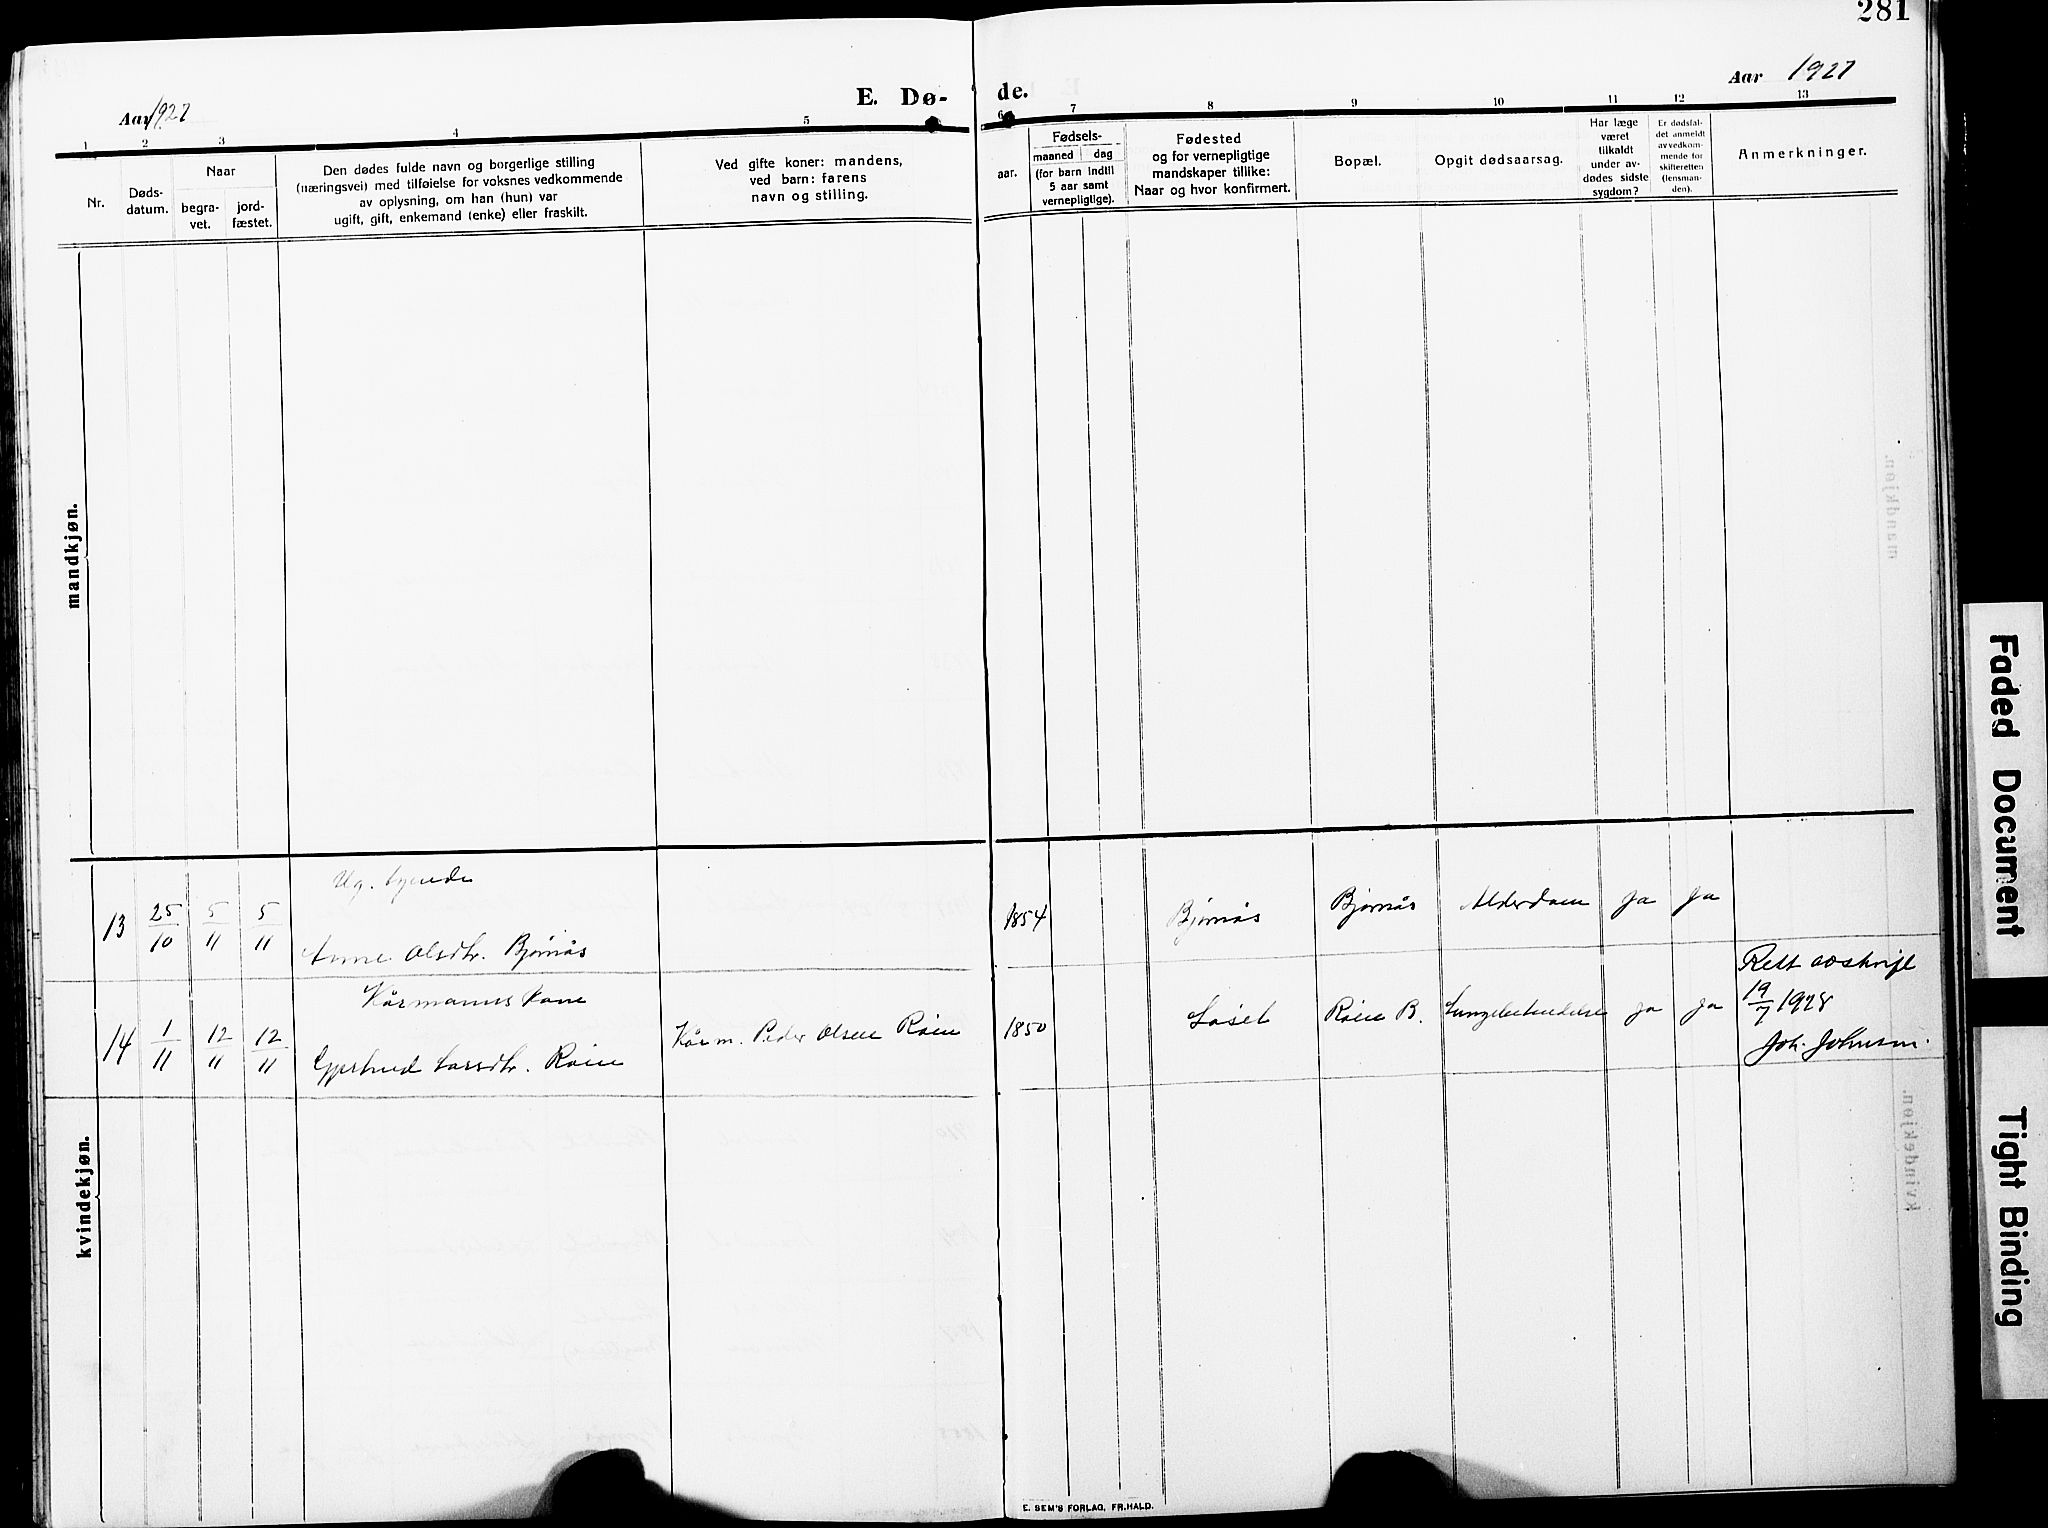 281
Aar 1927
E. Dø-
de.
Aar 1927
1 2 3 4 5 6 7 8 9 10 11 12 13
Nr.
Døds-
datum.
Naar
begra-
vet.
jord-
fæstet.
Den dødes fulde navn og borgerlige stilling
(næringsvei) med tilføielse for voksnes vedkommende
av oplysning, om han (hun) var
ugift, gift, enkemand (enke) eller fraskilt.
Ved gifte koner: mandens,
ved barn: farens
navn og stilling.
Fødsels-
aar.
maaned dag
(for barn indtil
5 aar samt
vernepligtige).
Fødested
og for vernepligtige
mandskaper tillike:
Naar og hvor konfirmert.
Bopæl.
Opgit dødsaarsag.
Har læge
været
tilkaldt
under av-
dødes sidste
sygdom?
Er dødsfal-
det anmeldt
av vedkom-
mende for
skifteretten
(lensman-
den).
Anmerkninger.
mandkjøn.
Ug.
13 25/10 5/11 5/11 Anne Olsdtr. Bjørnås 1854 Bjørnås Bjørnås Alderdom ja ja
Kårmanns kone
14 1/11 12/11 12/11 Gjertrud Larsdtr. Røen Kårm. Peder Olsen Røen 1850 Løset Røen B. Lungebetendelse ja ja
Rett avskrift
19/7 1928
Joh. Johnsen.
kvindekjøn.
E. SEM'S FORLAG, FR.HALD.
Faded Document
Tight Binding